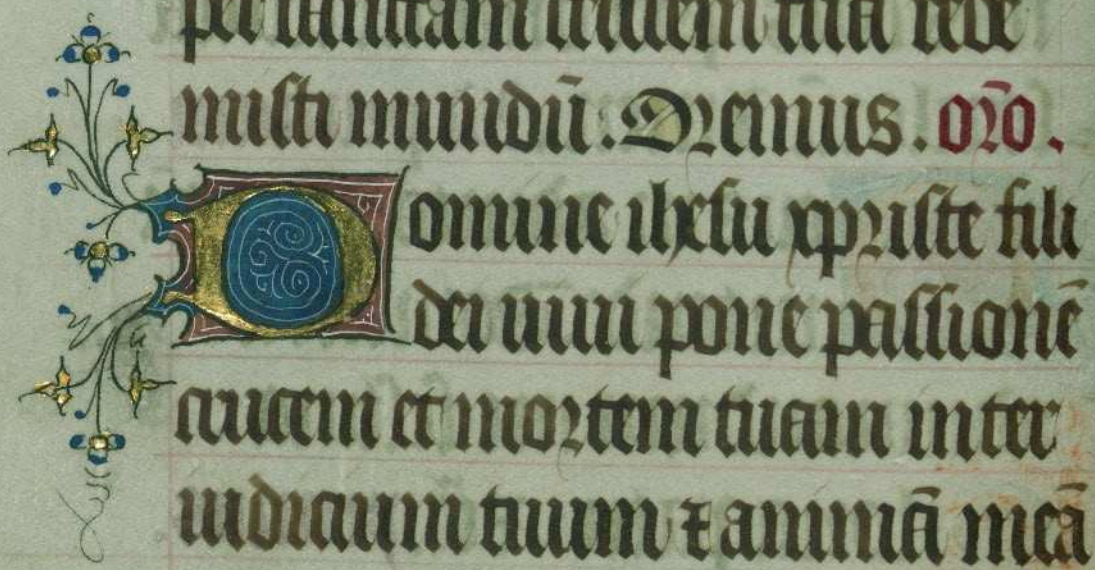 per sanctam crucem tuā rede
misti mundū. Oremus. oro.
Domine ihesu xpriste fili
dei uiui pone passionē
crucem et mortem tuam inter
iudicium tuum ⁊ animā meā